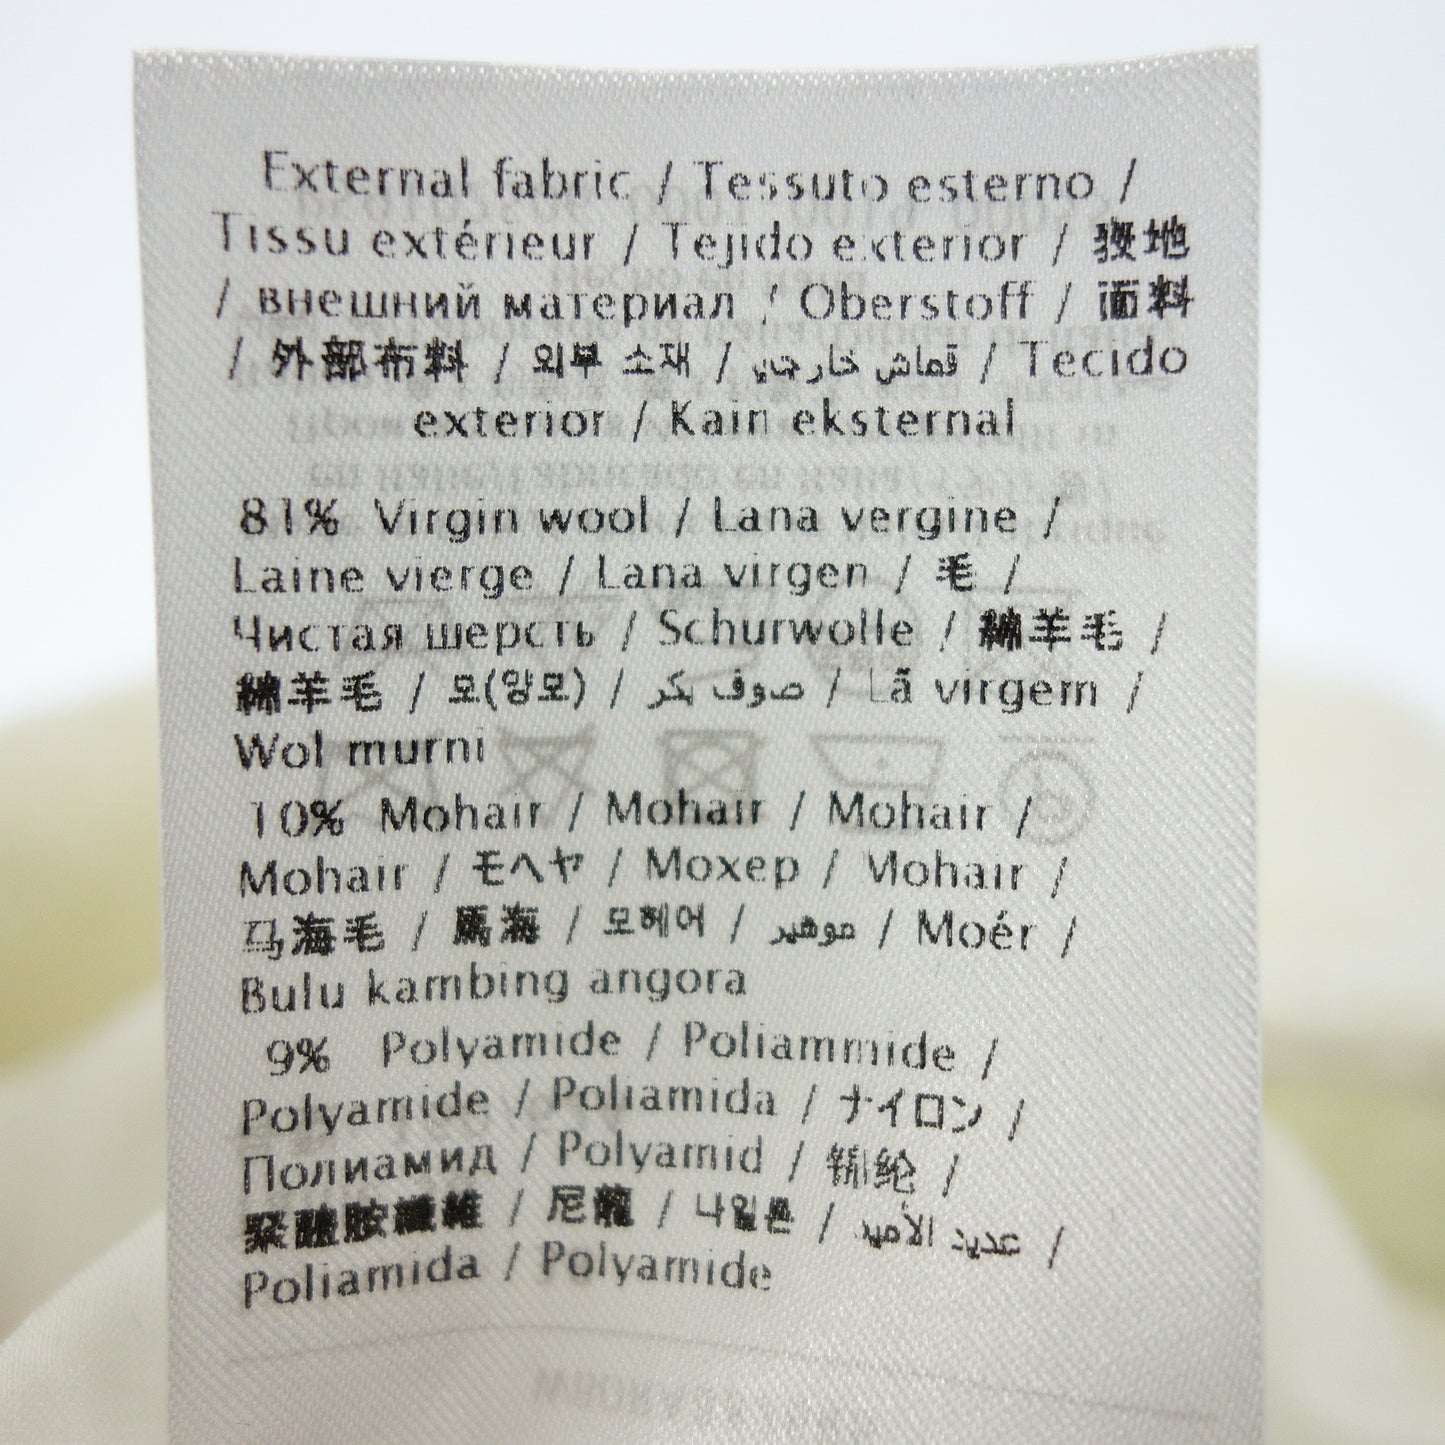 External fabric / Tessuto esterno /
Tissu extérieur / Tejido exterior / 表地
/ внешний материал / Oberstoff / 面料
/ 外部布料 / 외부 소재 / قماش خارجي / Tecido
exterior / Kain eksternal
81% Virgin wool / Lana vergine /
Laine vierge / Lana virgen / 毛 /
Чистая шерсть / Schurwolle / 綿羊毛 /
綿羊毛 / 모(양모) / صوف بكر / Lã virgem /
Wol murni
10% Mohair / Mohair / Mohair /
Mohair / モヘヤ / Мохер / Mohair /
马海毛 / 馬海 / 모헤어 / موهير / Moér /
Bulu kambing angora
9% Polyamide / Poliammide /
Polyamide / Poliamida / ナイロン /
Полиамид / Polyamid / 锦纶 /
聚醯胺纖維 / 尼龍 / 나일론 / عديد الأميد /
Poliamida / Polyamide